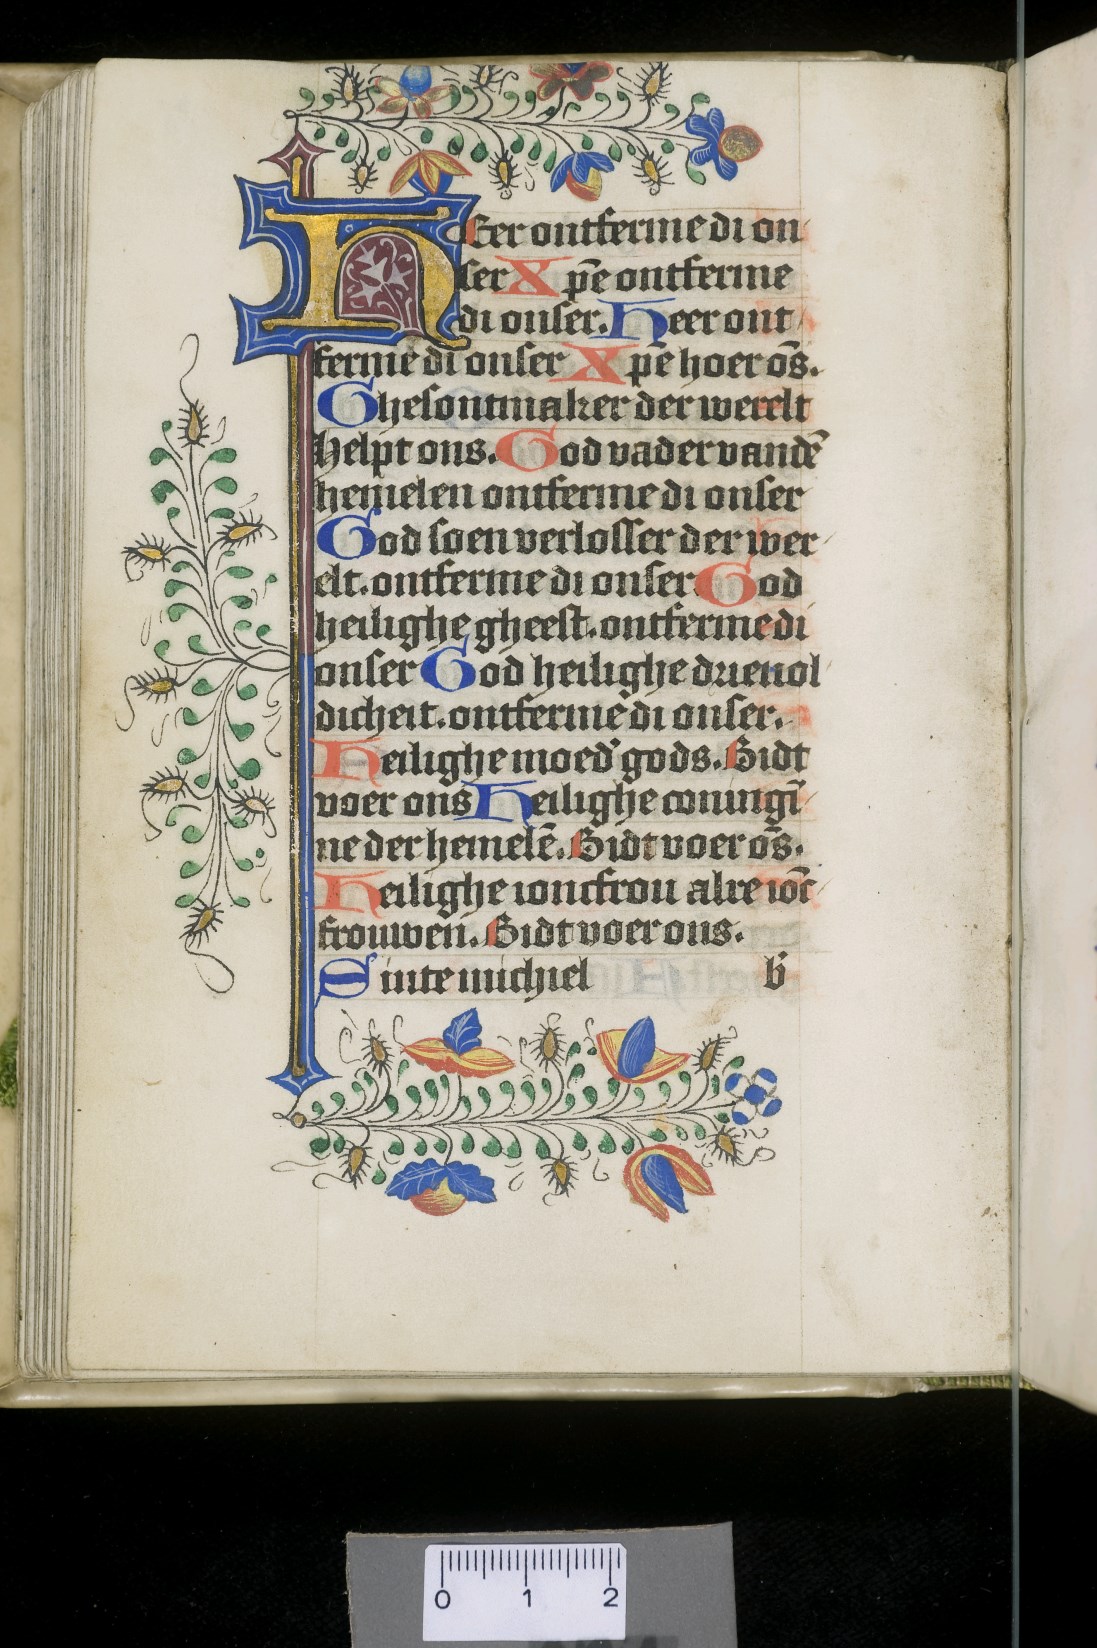 Heer ontferme di on
ser Xpē ontferme
di onser. Heer ont
ferme di onser Xpē hoer os̄.
Ghesontmaker der werelt
helpt ons. God vader vandē
hemelen ontferme di onser
God soen verlosser der wer
elt. ontferme di onser God
heilighe gheest. ontferme di
onser God heilighe drieuol
dicheit. ontferme di onser.
Heilighe moed' gods. Bidt
voer ons Heilighe coningī
ne der hemelē. Bidt voer os̄.
Heilighe ioncfrou alre iōc
frouwen. Bidt voer ons.
Sinte michiel b̄
0 1 2